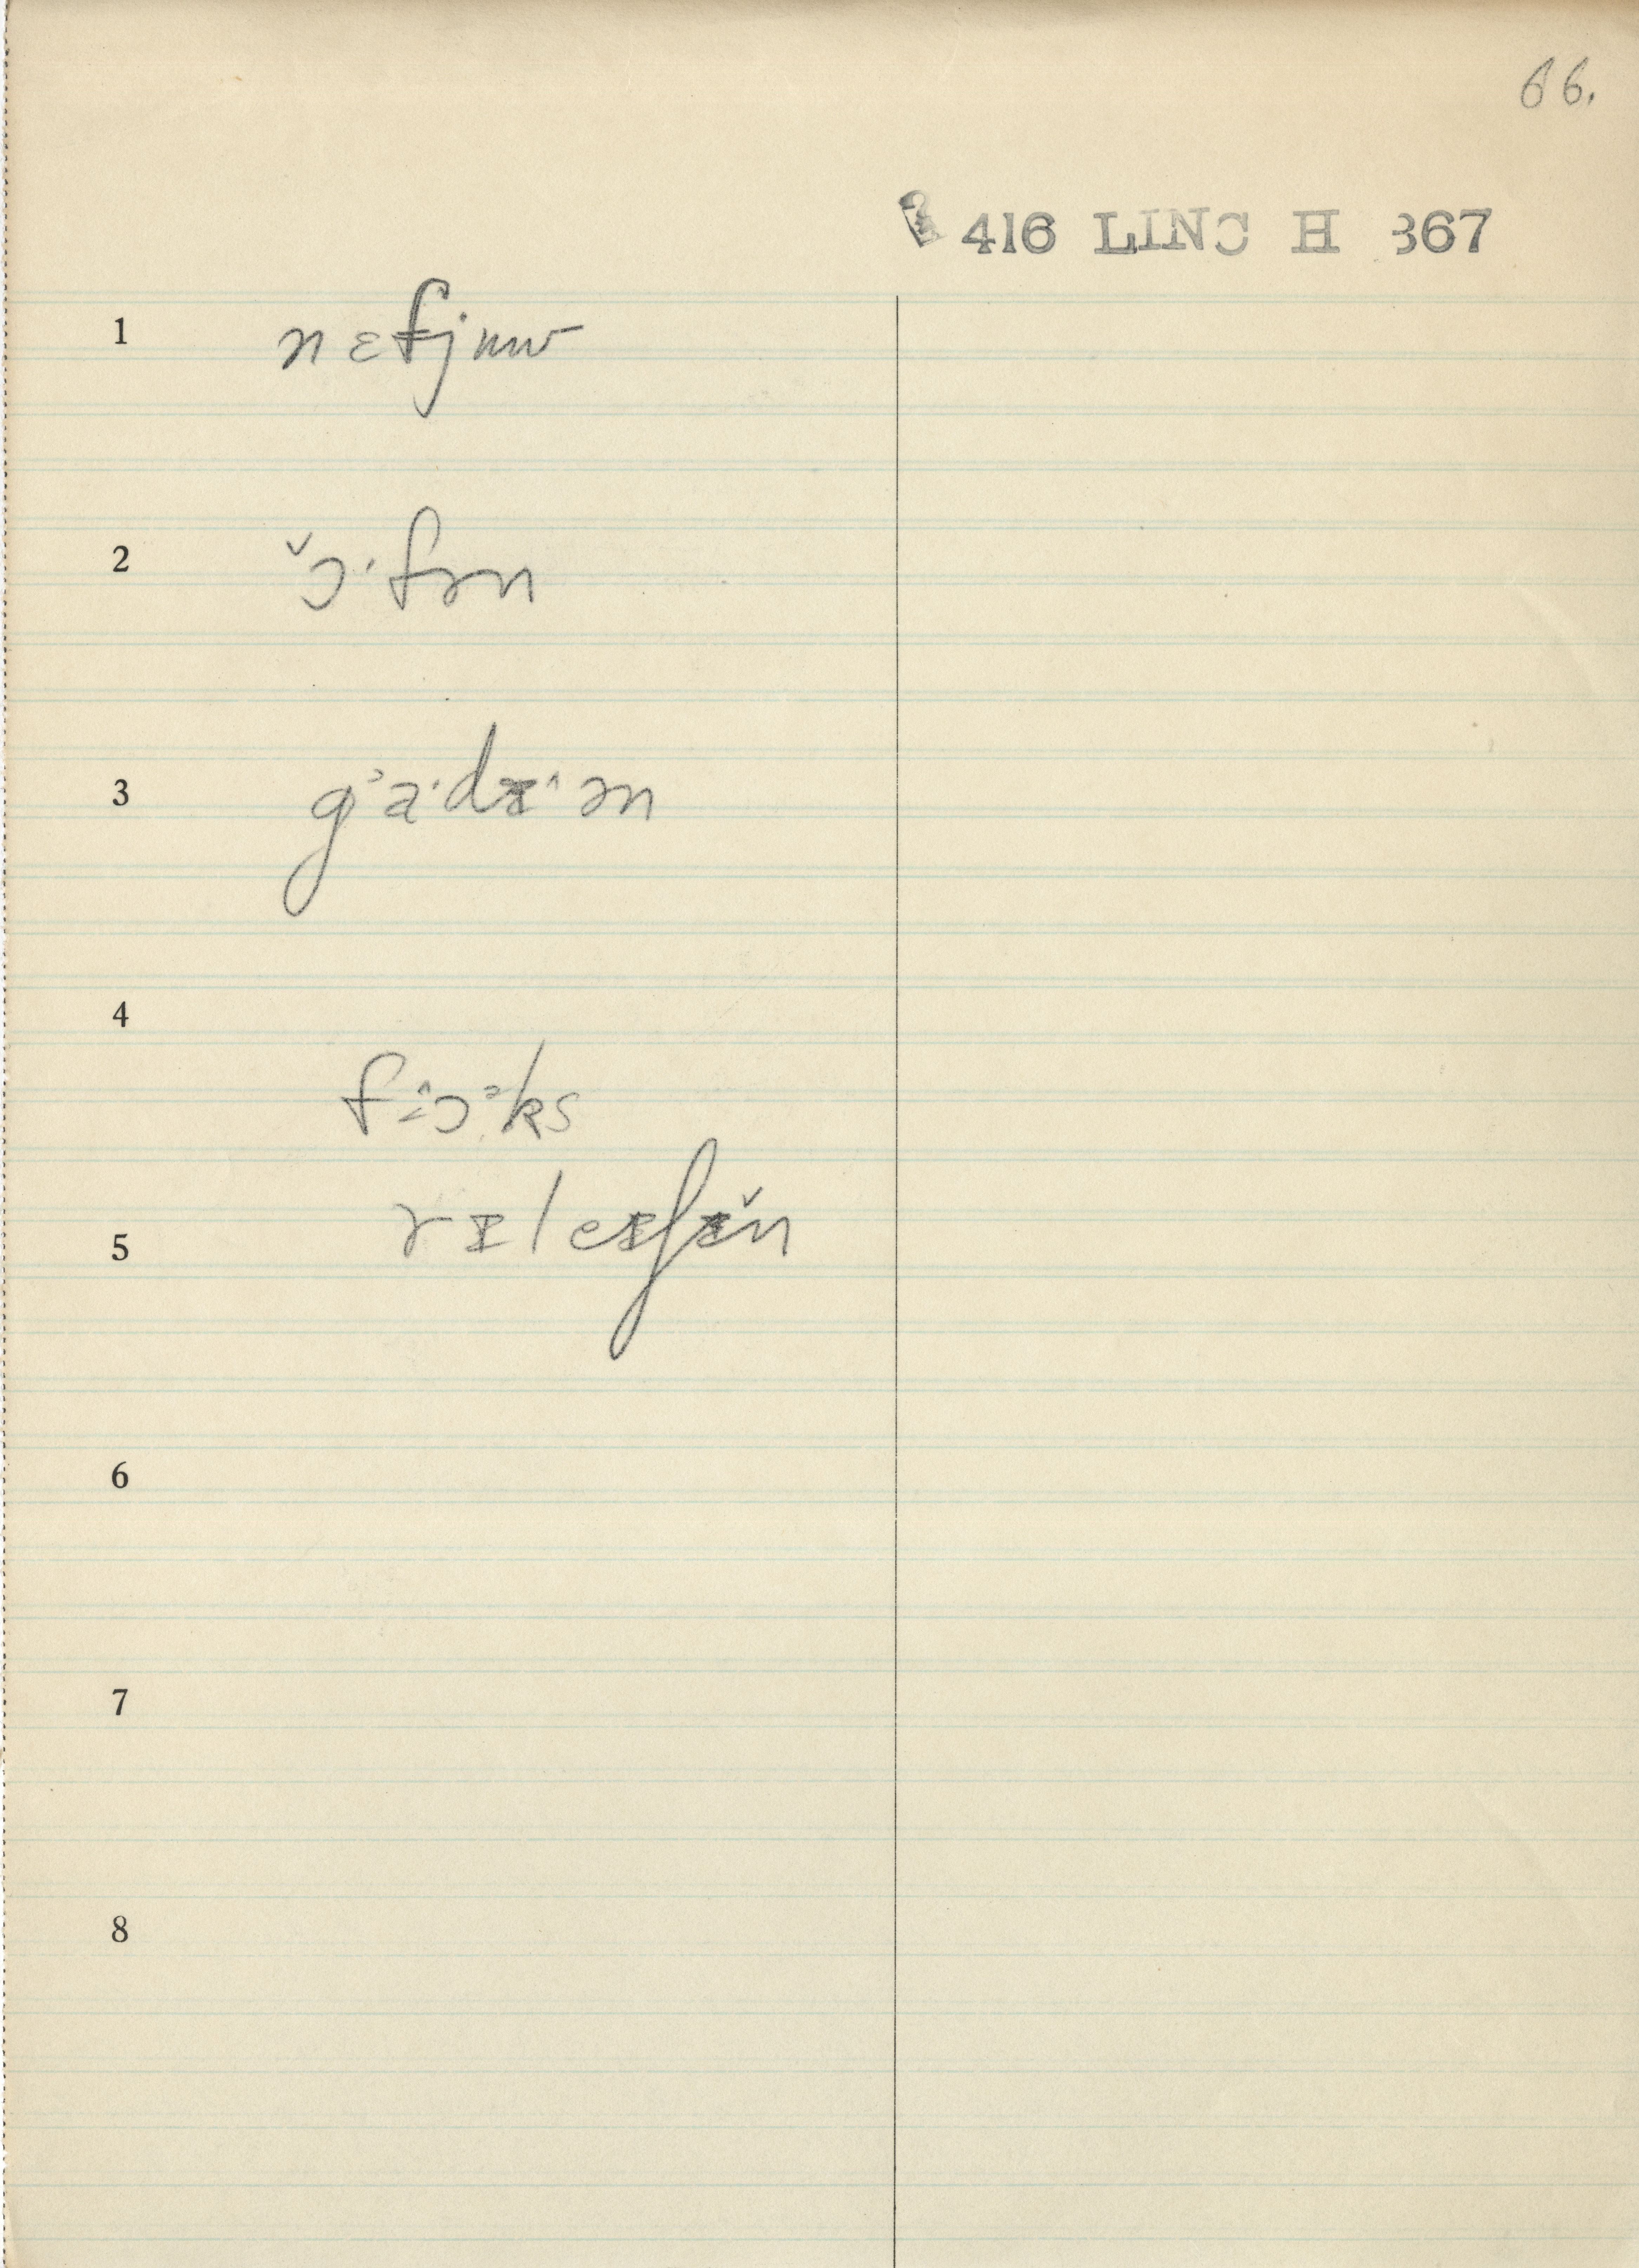 66.
416 LINC H 367
1 nɛfjuw
2 ɔ̌·fən
3 gᵊa·dɪ^ən
4
fɔᵊks
5 rɪleɪʃɪ̌n
6
7
8